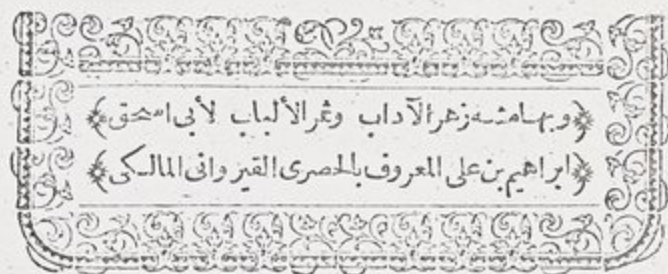 ﴿وبهامشه زهر الآداب وثمر الألباب لأبى اسحق﴾
﴿ابراهيم بن على المعروف بالحصرى القيروانى المالكى﴾